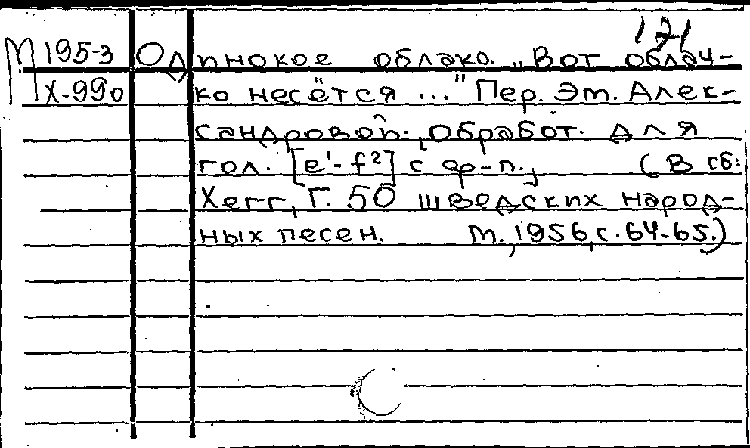 121
М 195-3 Одинокое облако. „Вот облач-
X-990 ко несётся ..." Пер. Эт. Алек-
сандровой., Обработ. для
гол. [e¹-f²] с ф-п., (В сб:
Хегг, Г. 50 шведских народ-
ных песен. М., 1956, с. 64-65.)